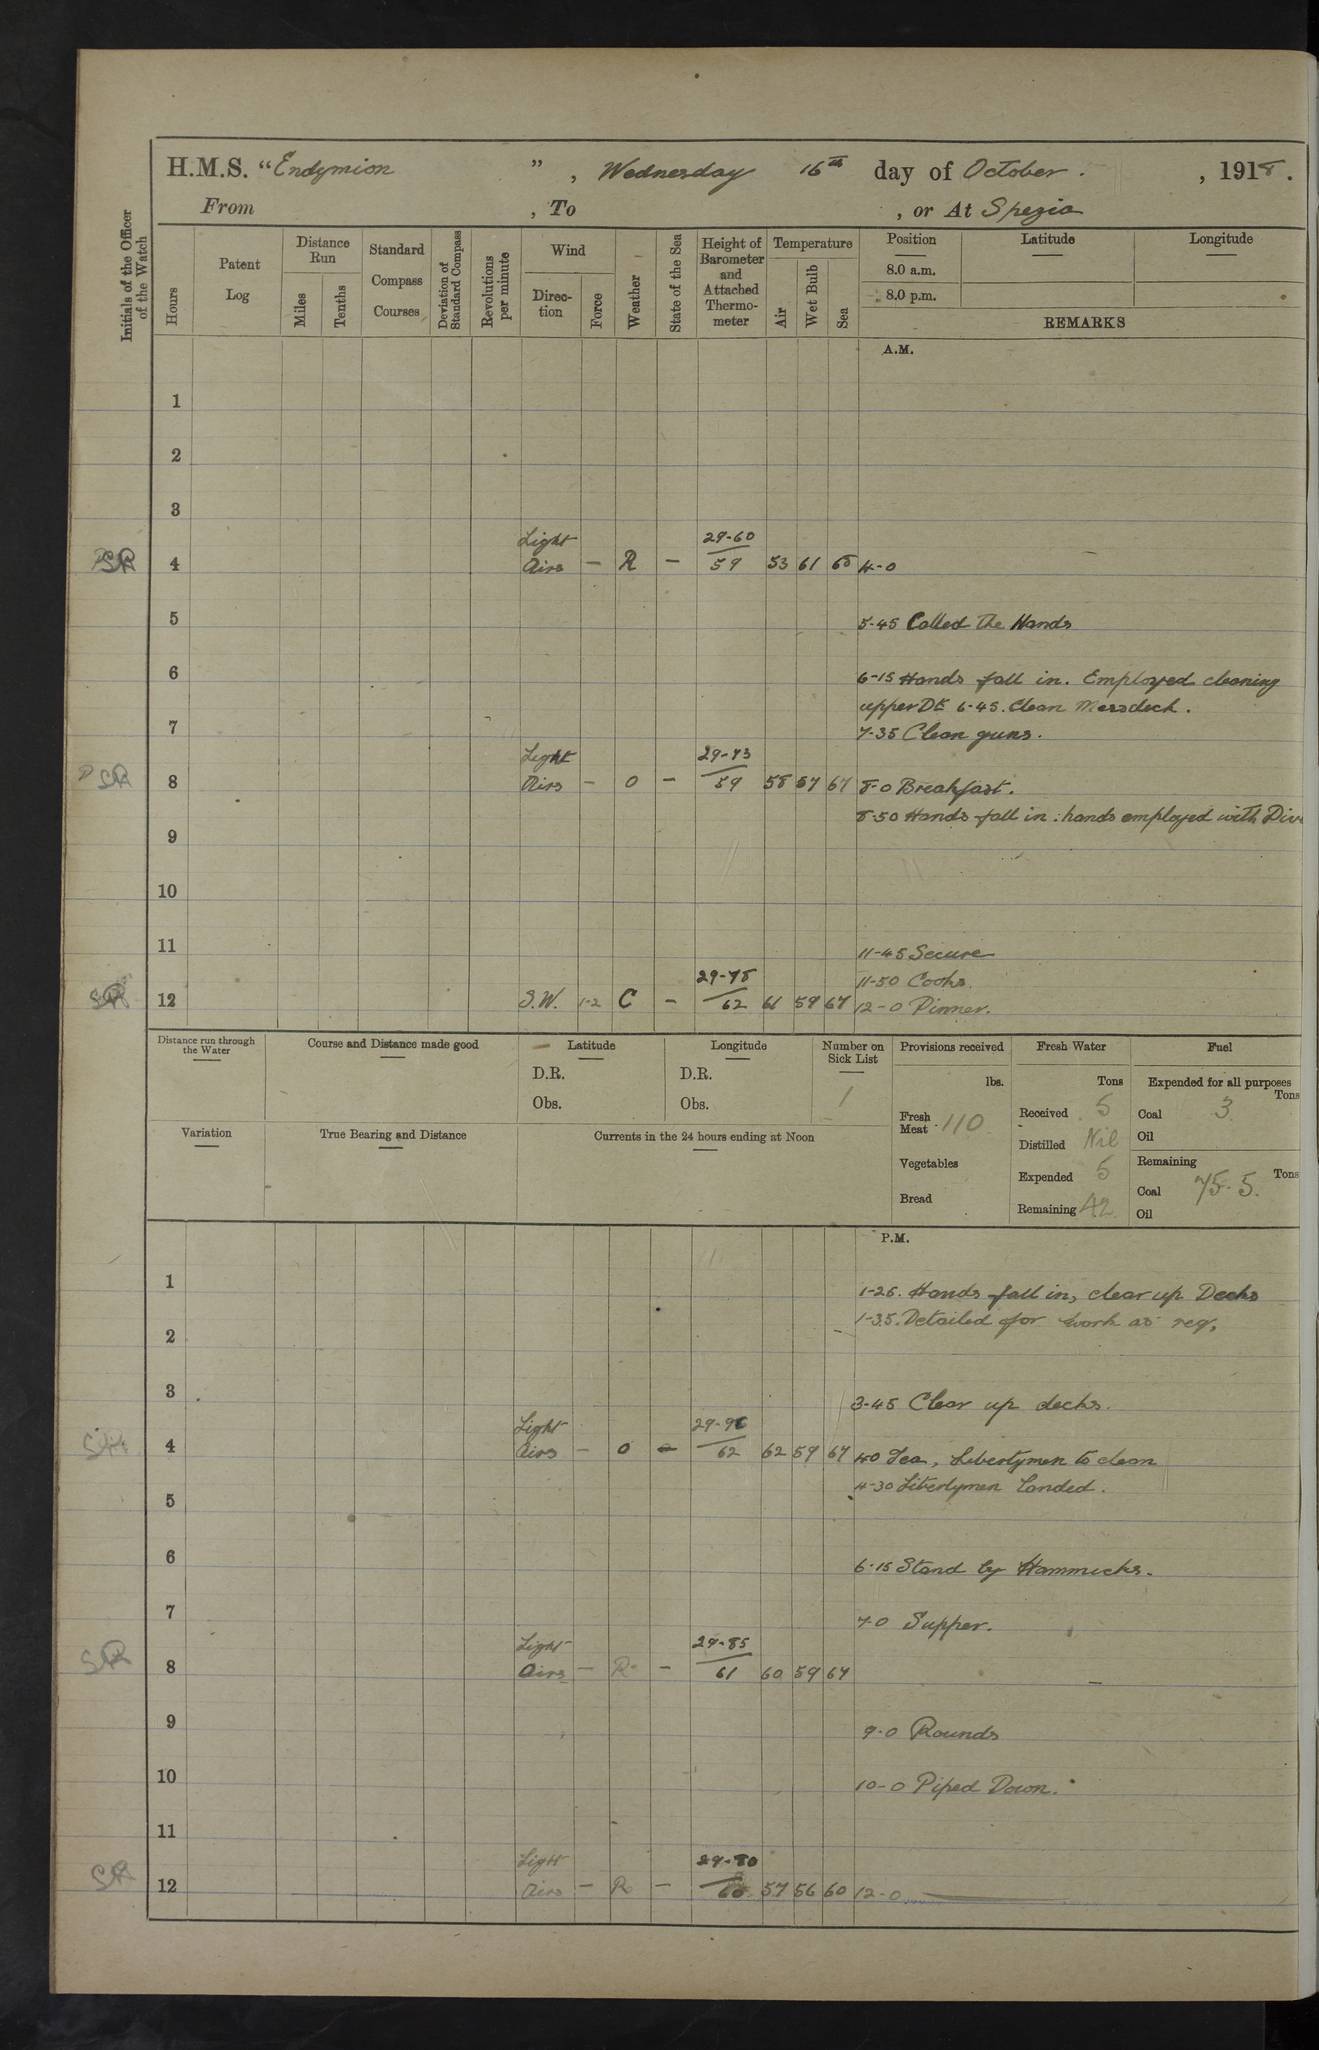 H.M.S. "Endymion", Wednesday 16th day of October. , 1918.
From , To , or At Spezia
Initials of the Officer of the Watch
Hours
Patent Log
Distance Run
Miles
Tenths
Standard Compass Courses
Deviation of Standard Compass
Revolutions per minute
Wind
Direc-tion
Force
Weather
State of the Sea
Height of Barometer and Attached Thermo-meter
Temperature
Air
Wet Bulb
Sea
Position Latitude Longitude
8.0 a.m.
8.0 p.m.
REMARKS
A.M.
1
2
3
Light 29-60
4 Airs — R — 59 53 61 4-0
5 5-45 Called the Hands
6 6-15 Hands fall in. Employed cleaning
upper Dk 6-45. Clean Messdeck.
7 7-35 Clean guns.
Light 29-73
SR 8 Airs — O — 59 58 57 67 8-0 Breakfast.
8-50 Hands fall in : hands employed with
9
10
11 11-45 Secure
29-78 11-50 Cooks.
SR 12 S.W. 1-2 C — 62 61 59 67 12-0 Dinner.
Distance run through the Water
Course and Distance made good
Latitude
D.R.
Obs.
Longitude
D.R.
Obs.
Number on Sick List
1
Provisions received
lbs.
Fresh Meat 110
Vegetables
Bread
Fresh Water
Tons
Received 5
Distilled Nil
Expended 5
Remaining 42
Fuel
Expended for all purposes
Tons
Coal 3.
Oil
Remaining
Tons
Coal 75.5.
Oil
Variation
True Bearing and Distance
Currents in the 24 hours ending at Noon
P.M.
1 1-25. Hands fall in, clear up Decks
1-35. Detailed for work as req.
2
3 3-45 Clear up decks.
Light
4 Airs — O — 62 62 59 67 4-0 Tea, Libertymen to clean
4-30 Libertymen Landed.
5
6 6-15 Stand by Hammicks.
7 7-0 Supper.
Light 29-85
SR 8 Airs — R — 61 60 59 67
9 9-0 Rounds
10 10-0 Piped Down.
11
Light 29-80
SR 12 Airs — R — 60 57 56 60 12-0